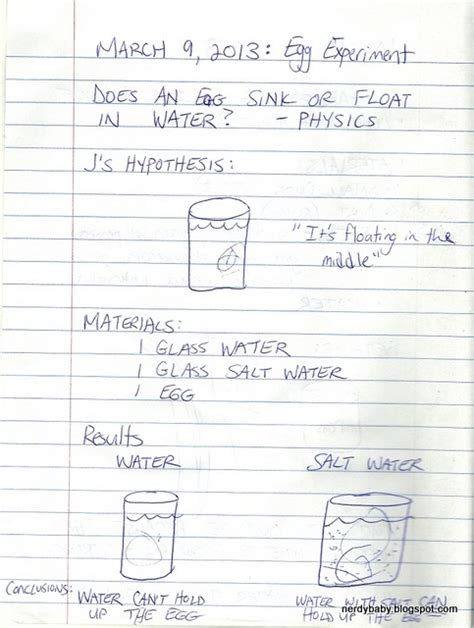 MARCH 9, 2013: Egg Experiment
DOES AN EGG SINK OR FLOAT
IN WATER? - PHYSICS
J'S HYPOTHESIS:
"It's floating in the
middle"
MATERIALS:
1 GLASS WATER
1 GLASS SALT WATER
1 EGG
Results
WATER
SALT WATER
Conclusions:
WATER CAN'T HOLD
UP THE EGG
WATER WITH SALT CAN
HOLD UP THE EGG
nerdybaby.blogspot.com